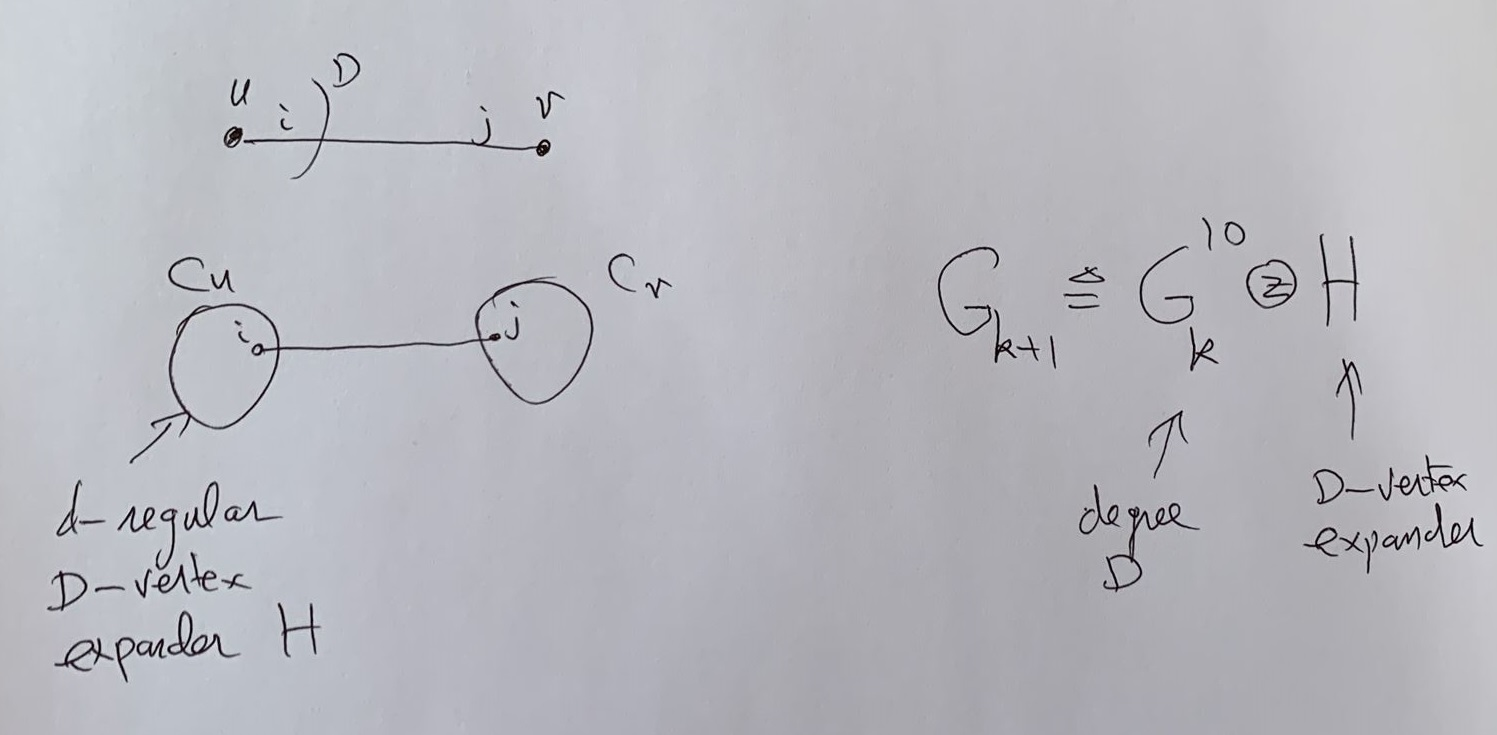 u i D j v
Cu Cv
i j
d-regular
D-vertex
expander H
G_{k+1} ≜ G_k^{10} ⓩ H
degree
D
D-vertex
expander